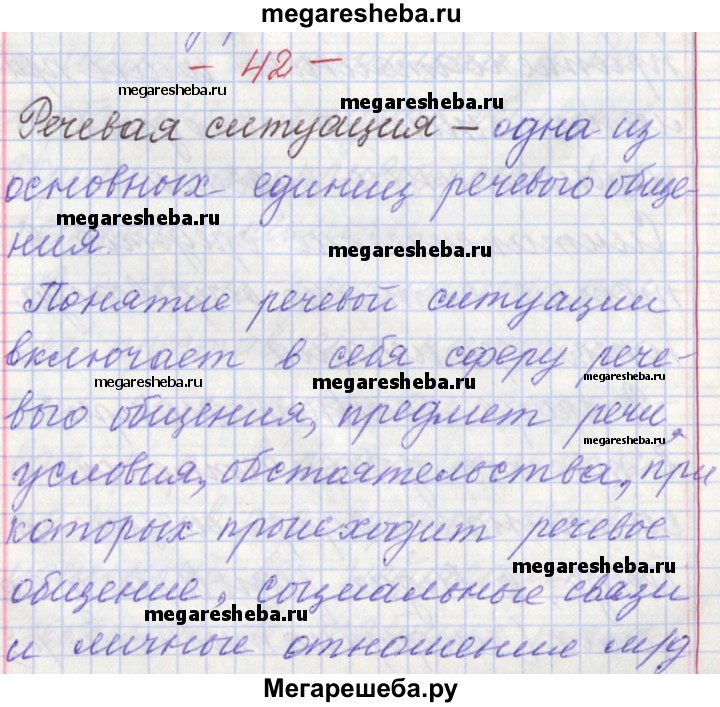 megaresheba.ru
- 42 -
megaresheba.ru
megaresheba.ru
Речевая ситуация – одна из
основных единиц речевого обще-
megaresheba.ru
ния.
megaresheba.ru
Понятие речевой ситуации
включает в себя сферу рече-
megaresheba.ru
megaresheba.ru
megaresheba.ru
вого общения, предмет речи,
megaresheba.ru
условия, обстоятельства, при
которых происходит речевое
megaresheba.ru
общение, социальные связи
megaresheba.ru
и личные отношения м/д
Мегарешеба.ру